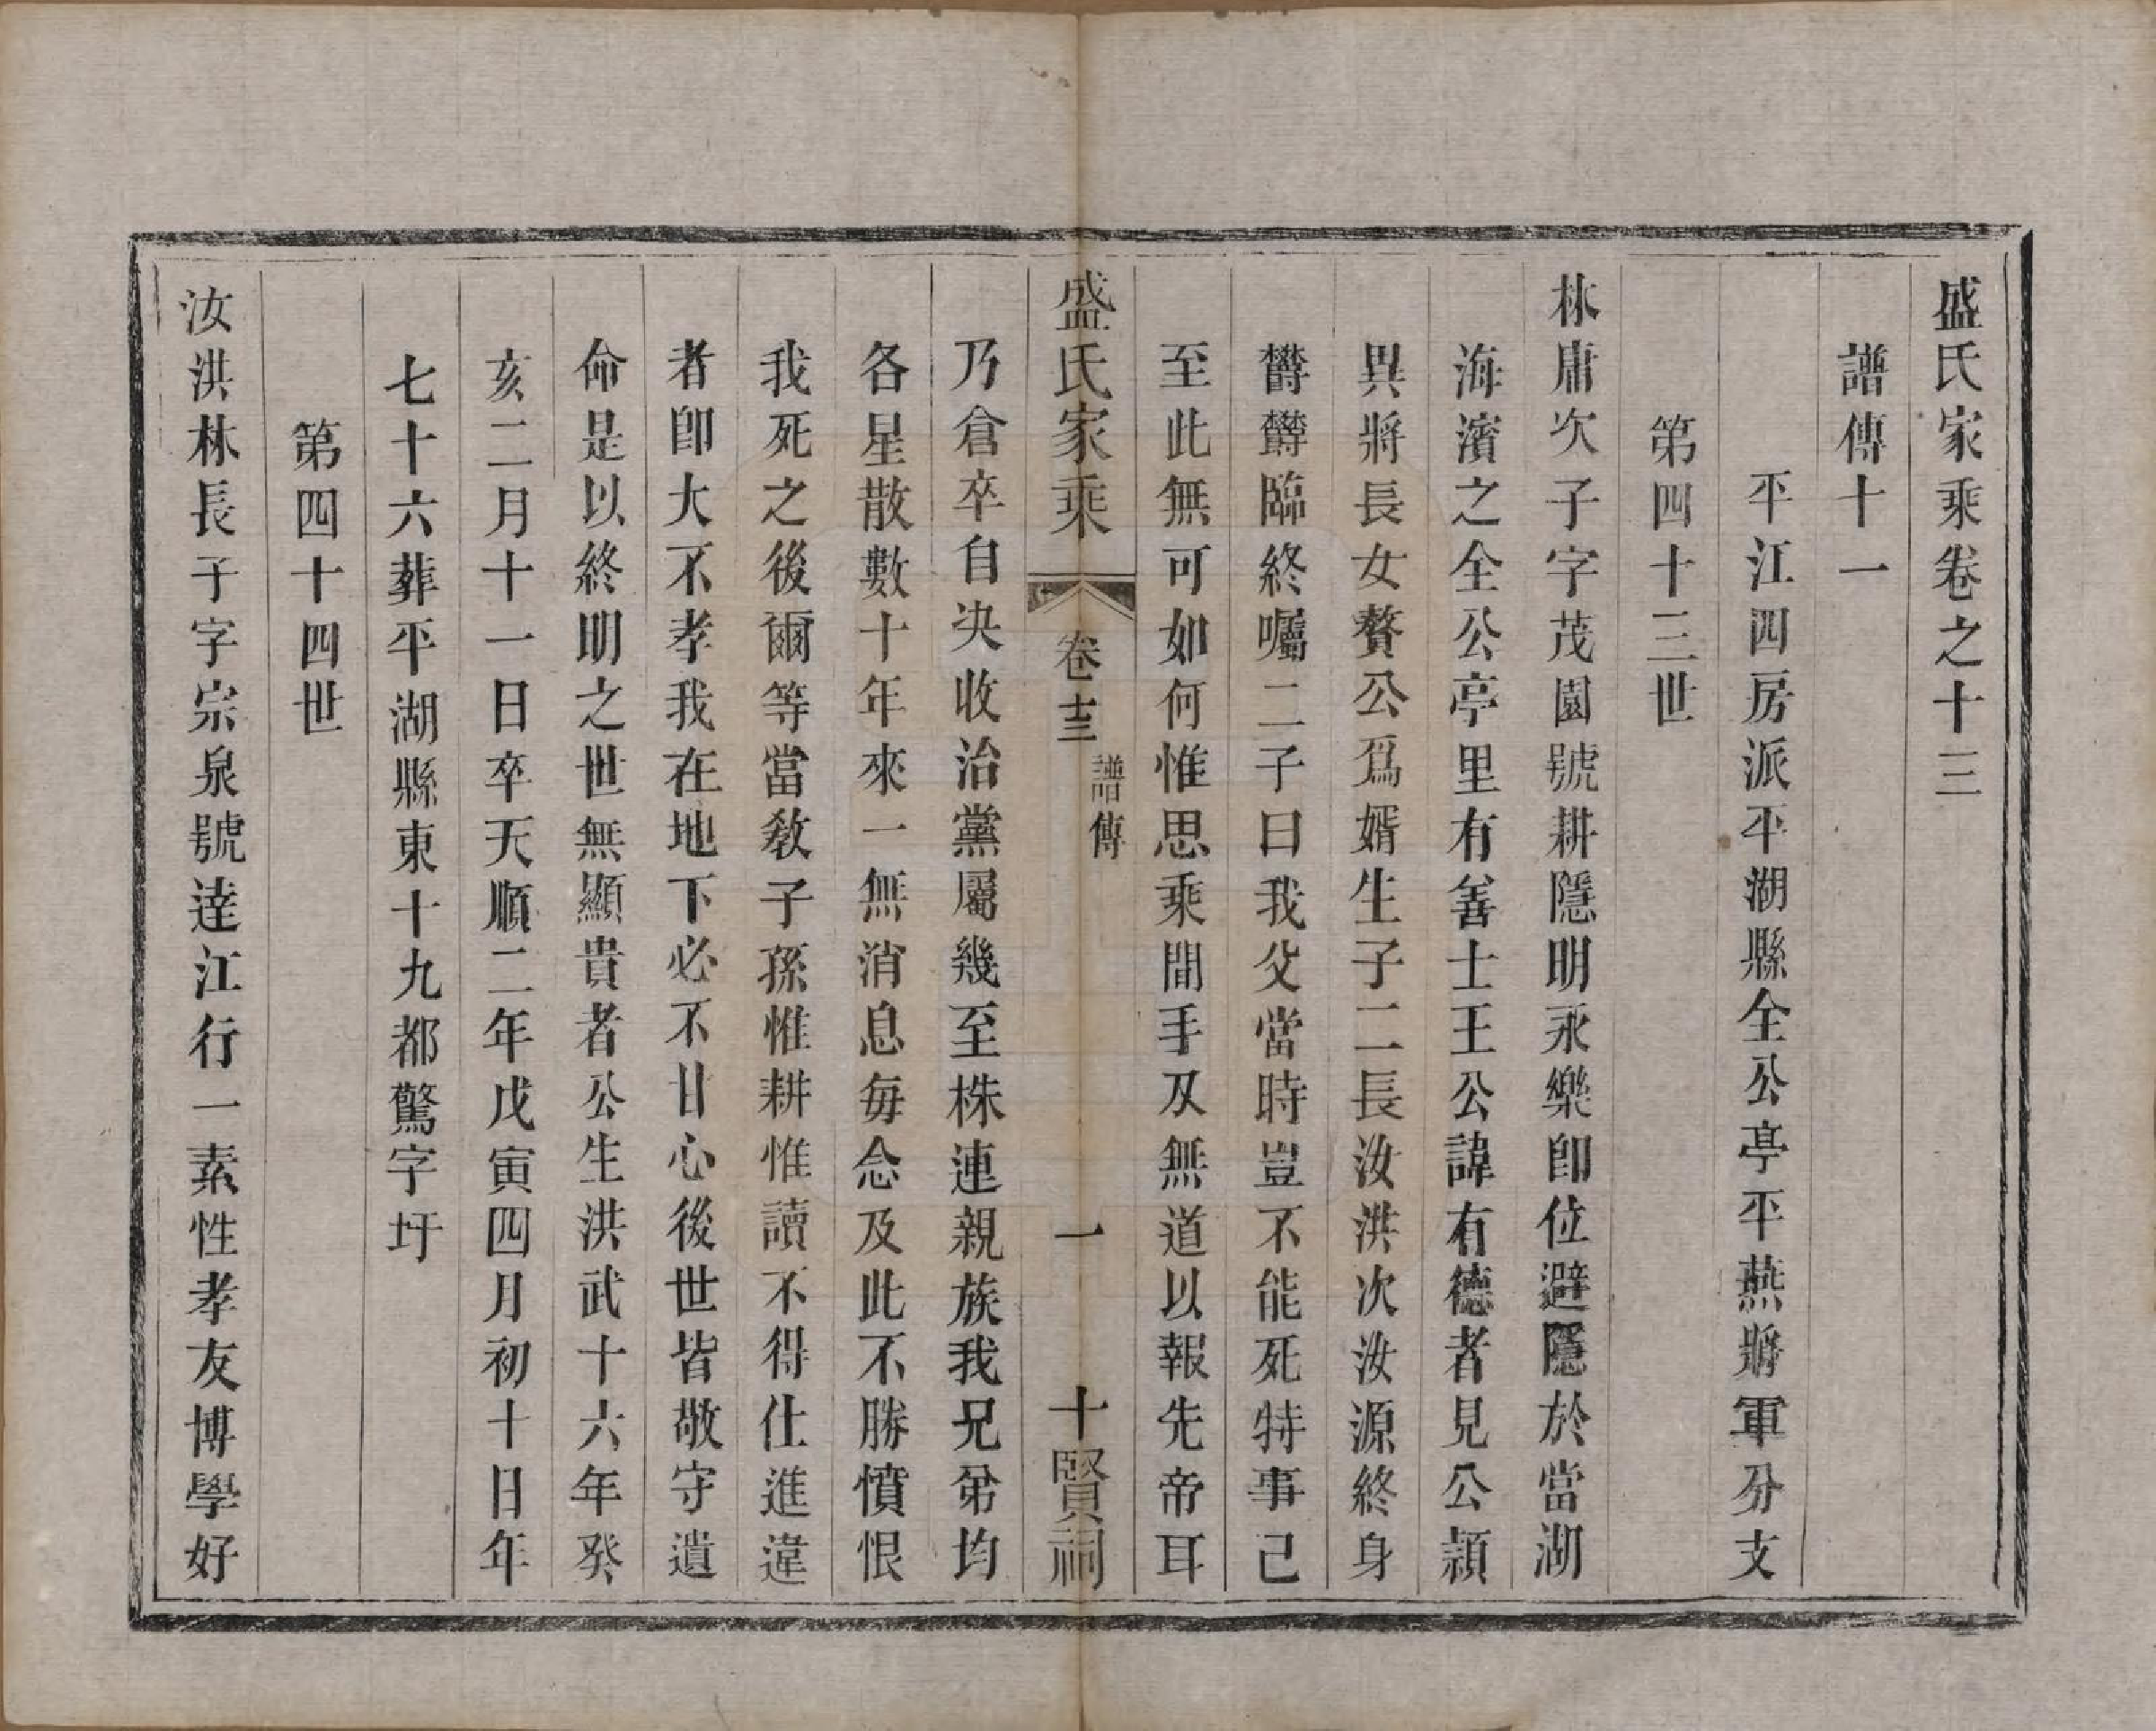 盛氏家乘卷之十三
譜傳十一
平江四房派平湖縣全公亭平燕將軍分支
第四十三世
林庸次子字茂園號耕隱明永樂卽位避隱於當湖
海濱之全公亭里有善士王公諱有德者見公頴
異將長女贅公爲婿生子二長汝洪次汝源終身
欝欝臨終囑二子曰我父當時豈不能死特事已
至此無可如何惟思乘間手刃無道以報先帝耳
盛氏家乘
卷十三
譜傳
一
十賢祠
乃倉卒自决收治黨屬幾至株連親族我兄弟均
各星散數十年來一無消息每念及此不勝憤恨
我死之後爾等當敎子孫惟耕惟讀不得仕進違
者卽大不孝我在地下必不甘心後世皆敬守遺
命是以終明之世無顯貴者公生洪武十六年癸
亥二月十一日卒天順二年戊寅四月初十日年
七十六葬平湖縣東十九都驚字圩
第四十四世
汝洪林長子字宗泉號達江行一素性孝友博學好